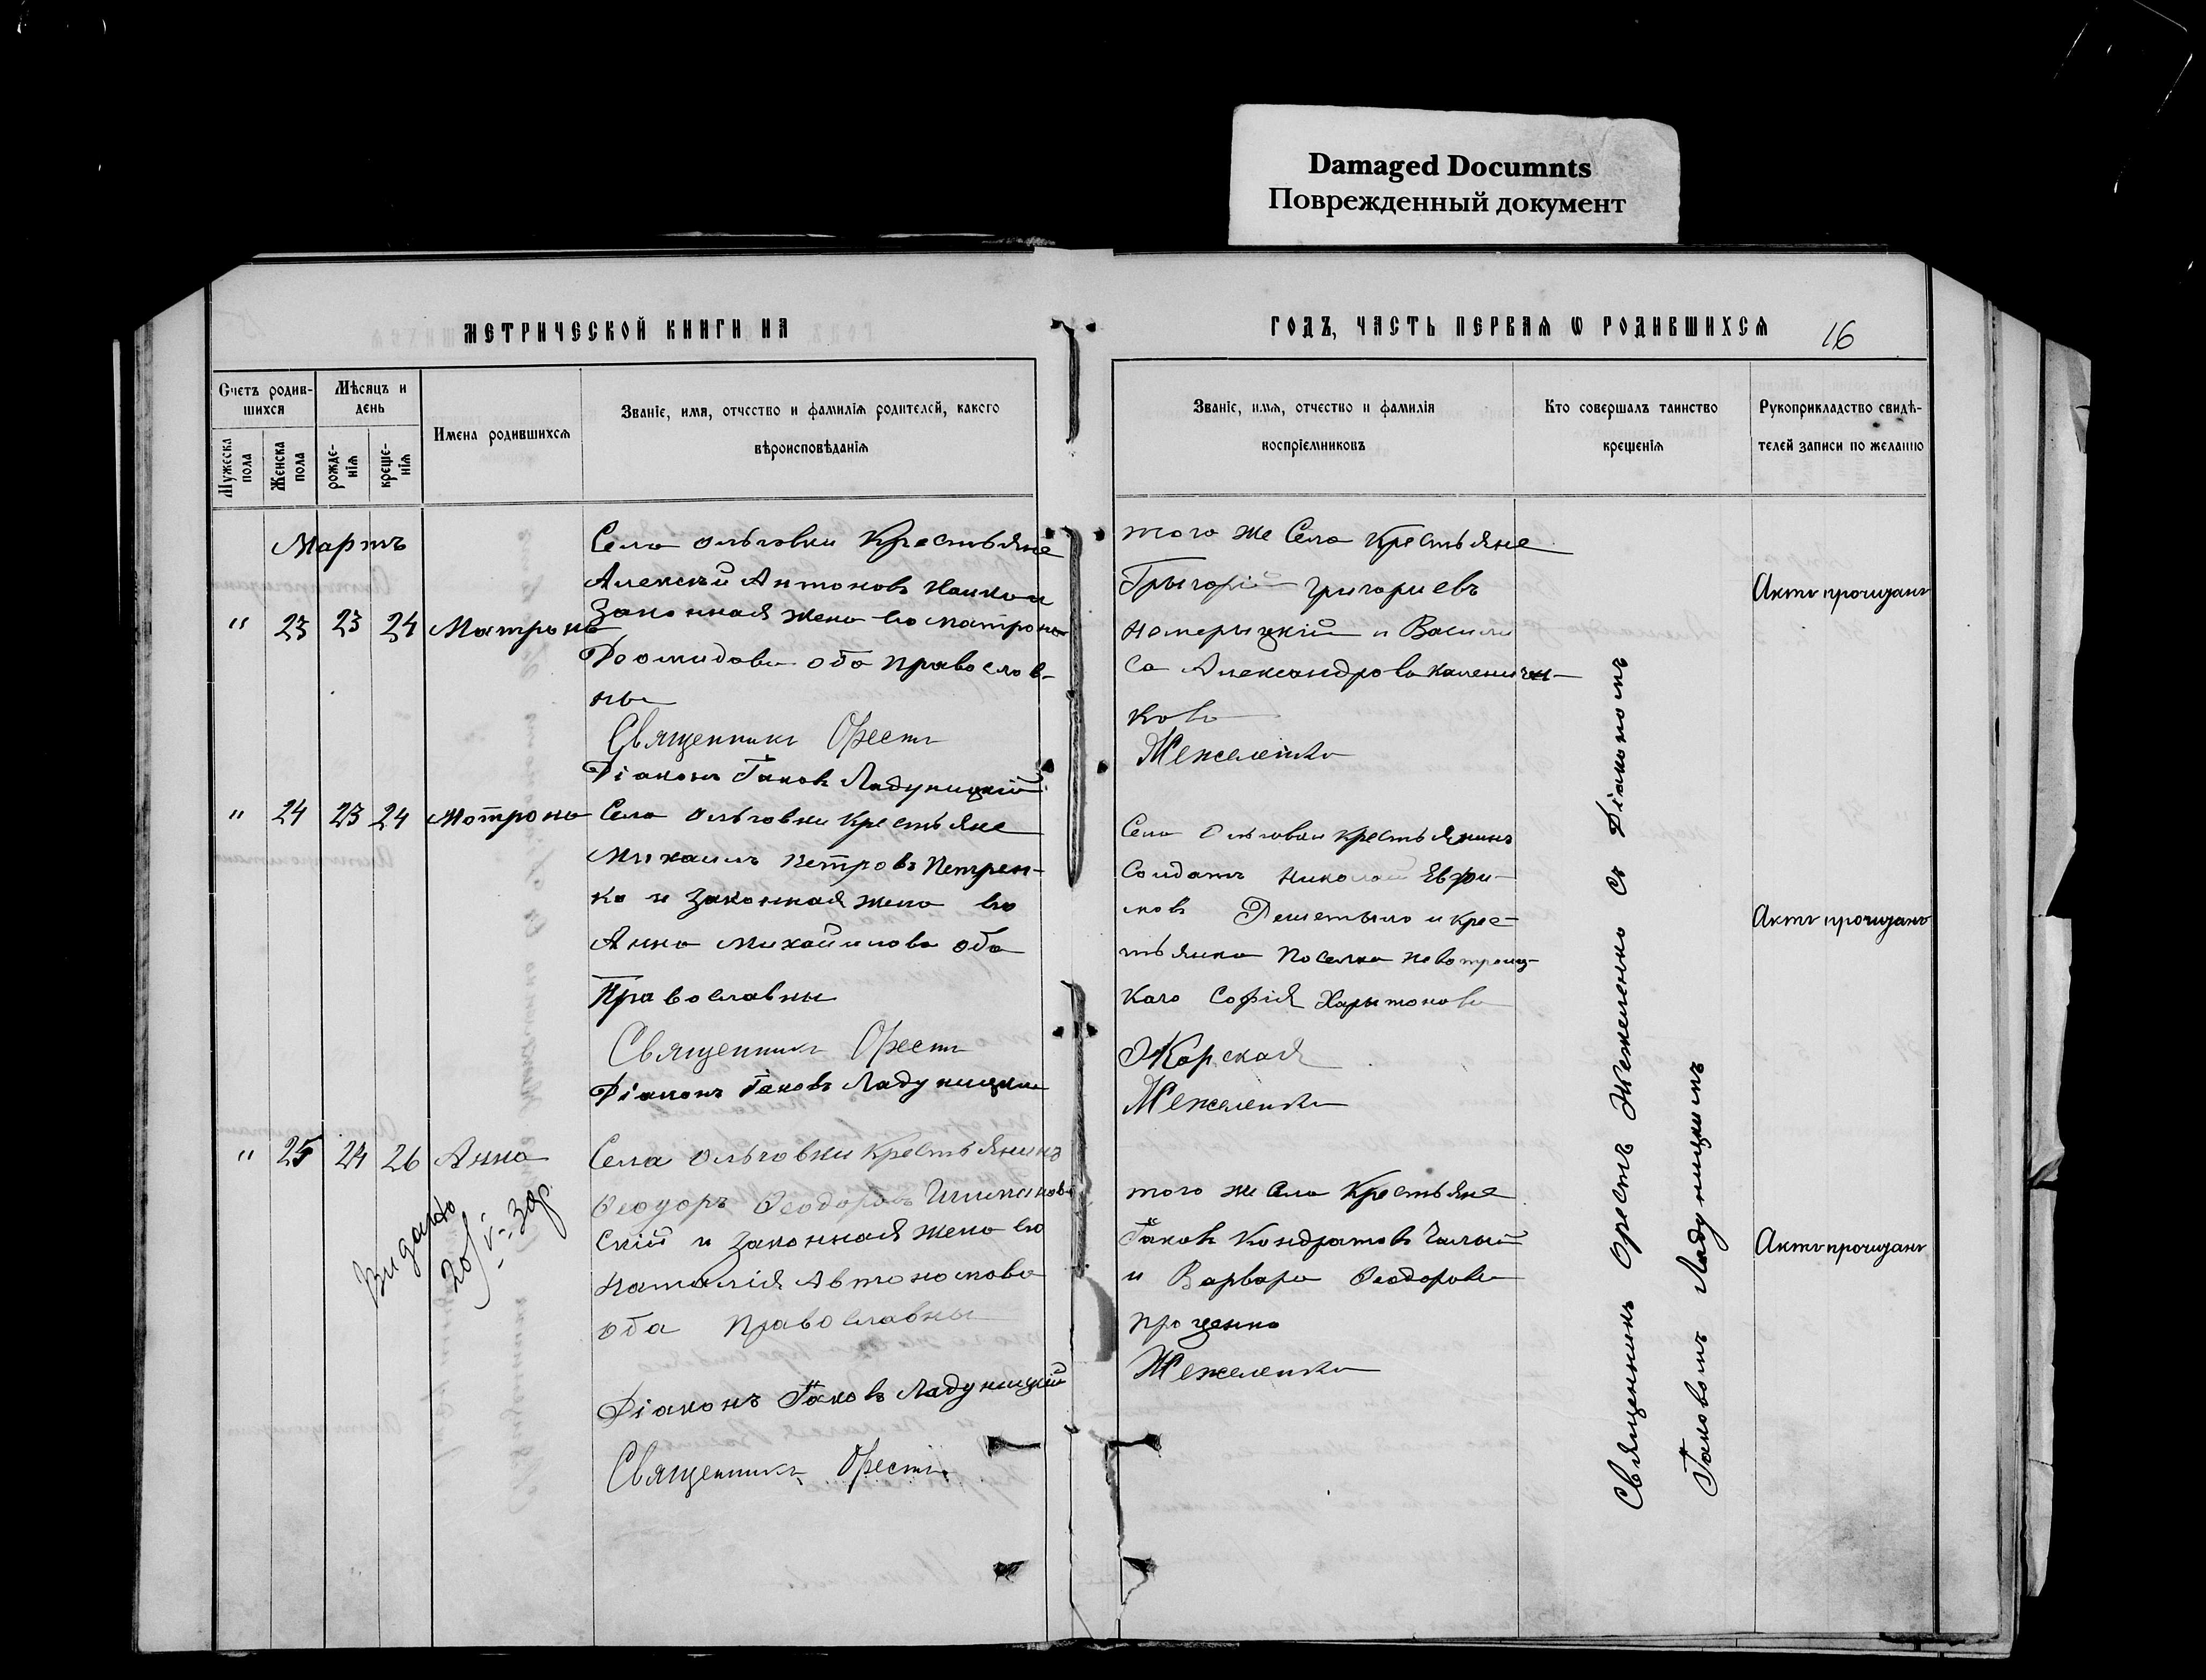 Damaged Documnts
Поврежденный документ
МЕТРИЧЕСКОЙ КНИГИ НА
ГОДЪ, ЧАСТЬ ПЕРВАЯ Ѡ РОДИВШИХСЯ
16
Счетъ родив-
шихся
Мѣсяцъ и
день
Мужеска
пола
Женска
пола
рожде-
нія
креще-
нія
Имена родившихся
Званіе, имя, отчество и фамилія родителей, какого
вѣроисповѣданія
Званіе, имя, отчество и фамилія
воспріемниковъ
Кто совершалъ таинство
крещенія
Рукоприкладство свидѣ-
телей записи по желанію
Мартъ
" 23 23 24 Матрона
Села Ольговки Крестьяне
Алексѣй Антоновъ
Законная жена его матрона
Діомидова оба православ-
ны
Священникъ Орестъ
Діаконъ Іаковъ Ладуницкій
того же Села Крестьяне
Грыгорій григориевъ
и Васили
са Александрова каленичен-
кова
Жежеленко
Актъ прочиданъ
" 24 23 24 Мотрона
Села Ольговки крестьяне
Михаилъ Петровъ Петрен-
ко и законная жена его
Анна Михайилова оба
Православны
Священникъ Орестъ
Діаконъ Іаковъ Ладуницкий
Села Ольговки крестьянинъ
Солдатъ Николай Ефи-
мовъ и крес-
тьянка Поселка Новотроиц-
каго Софія Харытонова
Жарская
Жежеленко
Актъ прочиданъ
" 25 24 26 Анна
Видано
20/V-30р
Села Ольговки Крестьянинъ
Ѳеодоръ Ѳеодоровъ
скій и законная жена его
Наталія Автономова
оба Православны
Діаконъ Іаковъ Ладуницкій
Священникъ Орестъ
того же Села Крестьяне
Іаковъ Кондратовъ Чалый
и Варвара Ѳеодорова
проценко
Жежеленко
Актъ прочиданъ
Священникъ Орестъ Жежеленко съ Діакономъ
Іаковомъ Ладуницкимъ